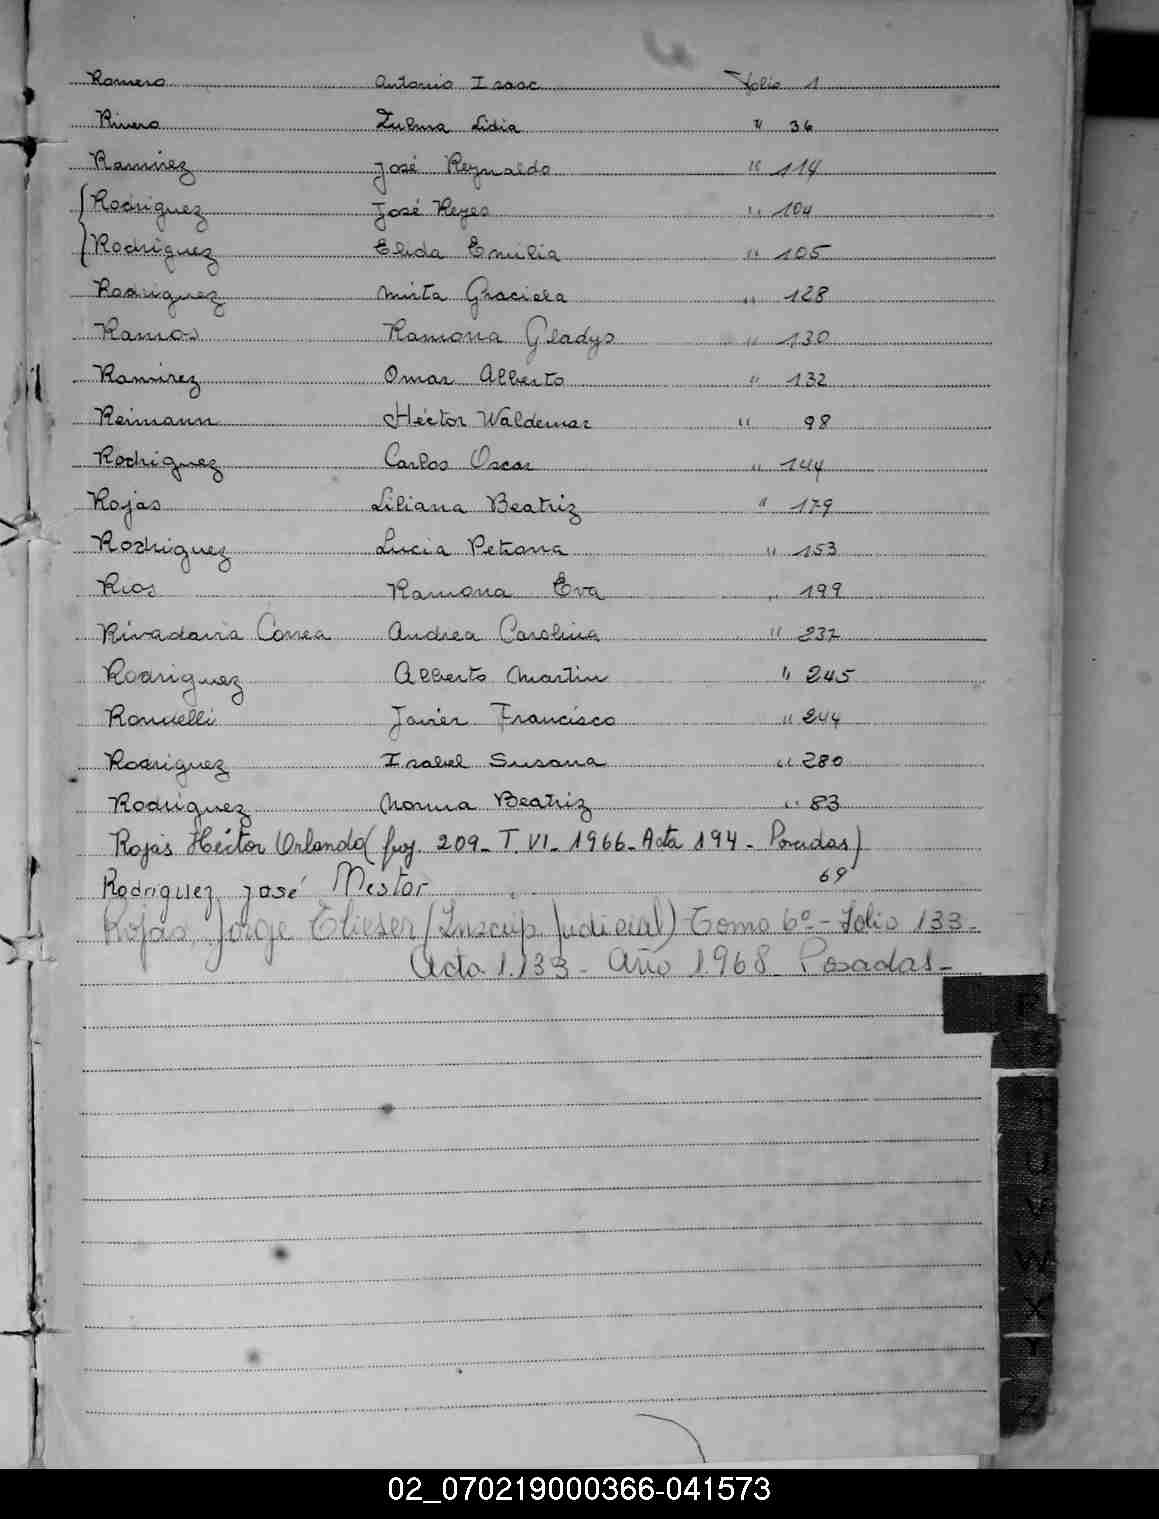 Romero Antonio Isaac Folio 1
Rivero Zulma Lidia " 36
Ramirez José Reynaldo " 114
Rodriguez José Reyes " 104
Rodriguez Elida Emilia " 105
Rodriguez Mirta Graciela " 128
Ramos Ramona Gladys " 130
Ramirez Omar Alberto " 132
Reimann Héctor Waldemar " 98
Rodriguez Carlos Oscar " 144
Rojas Liliana Beatriz " 179
Rodriguez Lucia Petrona " 153
Rios Ramona Eva " 199
Rivadavia Correa Andrea Carolina " 237
Rodriguez Alberto Martin " 245
Javier Francisco " 244
Rodriguez Isabel Susana " 280
Rodriguez Norma Beatriz " 83
Rojas Héctor Orlando ( 209_ T. VI_ 1966_ Acta 194 - Posadas)
Rodriguez José Nestor 69
Rojas, Jorge Elieser (Inscrip. Judicial) Tomo 6º - Folio 133_
Acta 1.133 - Año 1.968 Posadas_
R
S
T
U
V
W
X
Y
Z
02_070219000366-041573